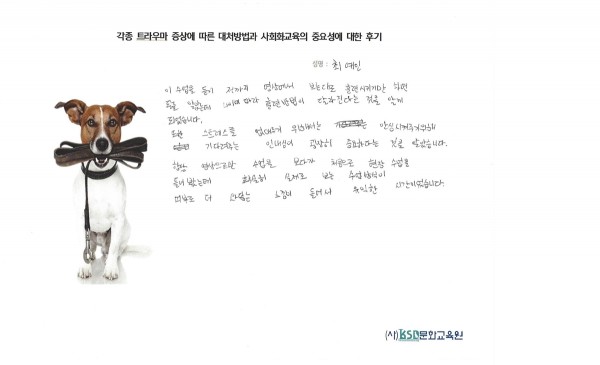 각종 트라우마 증상에 따른 대처방법과 사회화교육의 중요성에 대한 후기
성명 : 최예인
이 수업을 듣기 전까지 영상에서 보는대로 훈련시키기만 하면
되는 줄 알았는데 나이에 따라 훈련방법이 달라진다는 것을 알게
되었습니다.
스트레스를 없애주기 위해서는 안심시켜주기위해
기다려주는 인내심이 굉장히 중요하다는 것을 알았습니다.
항상 영상으로만 수업을 보다가 처음으로 현장 수업을
들어 봤는데 확실히 실제로 보는 수업방식이
더 와닿는 느낌이 들어서 유익한 시간이었습니다.
(사)KSD문화교육원